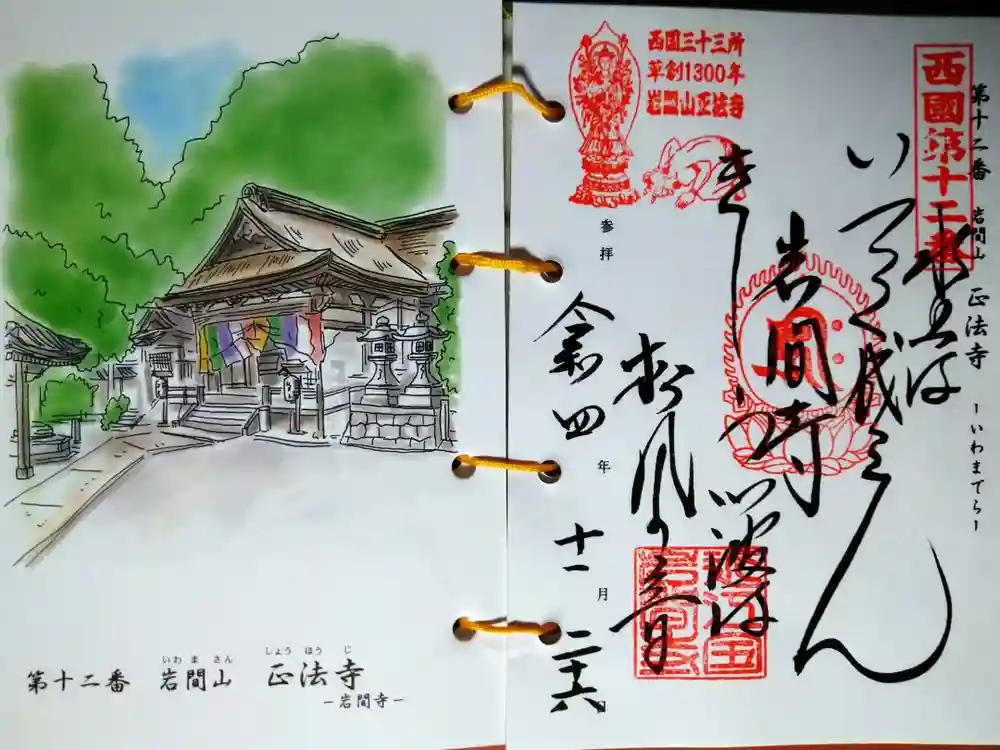 いわ ま さん しょう ほう じ
第十二番 岩間山 正法寺
ー岩間寺ー
西國三十三所
草創1300年
岩間山正法寺
西國第十二番
第十二番 岩間山 正法寺 ーいわまてらー
水上は
いづくなるらん
岩間寺
きし
うつ波は
松風の音
参拝 令和四年十一月二十六